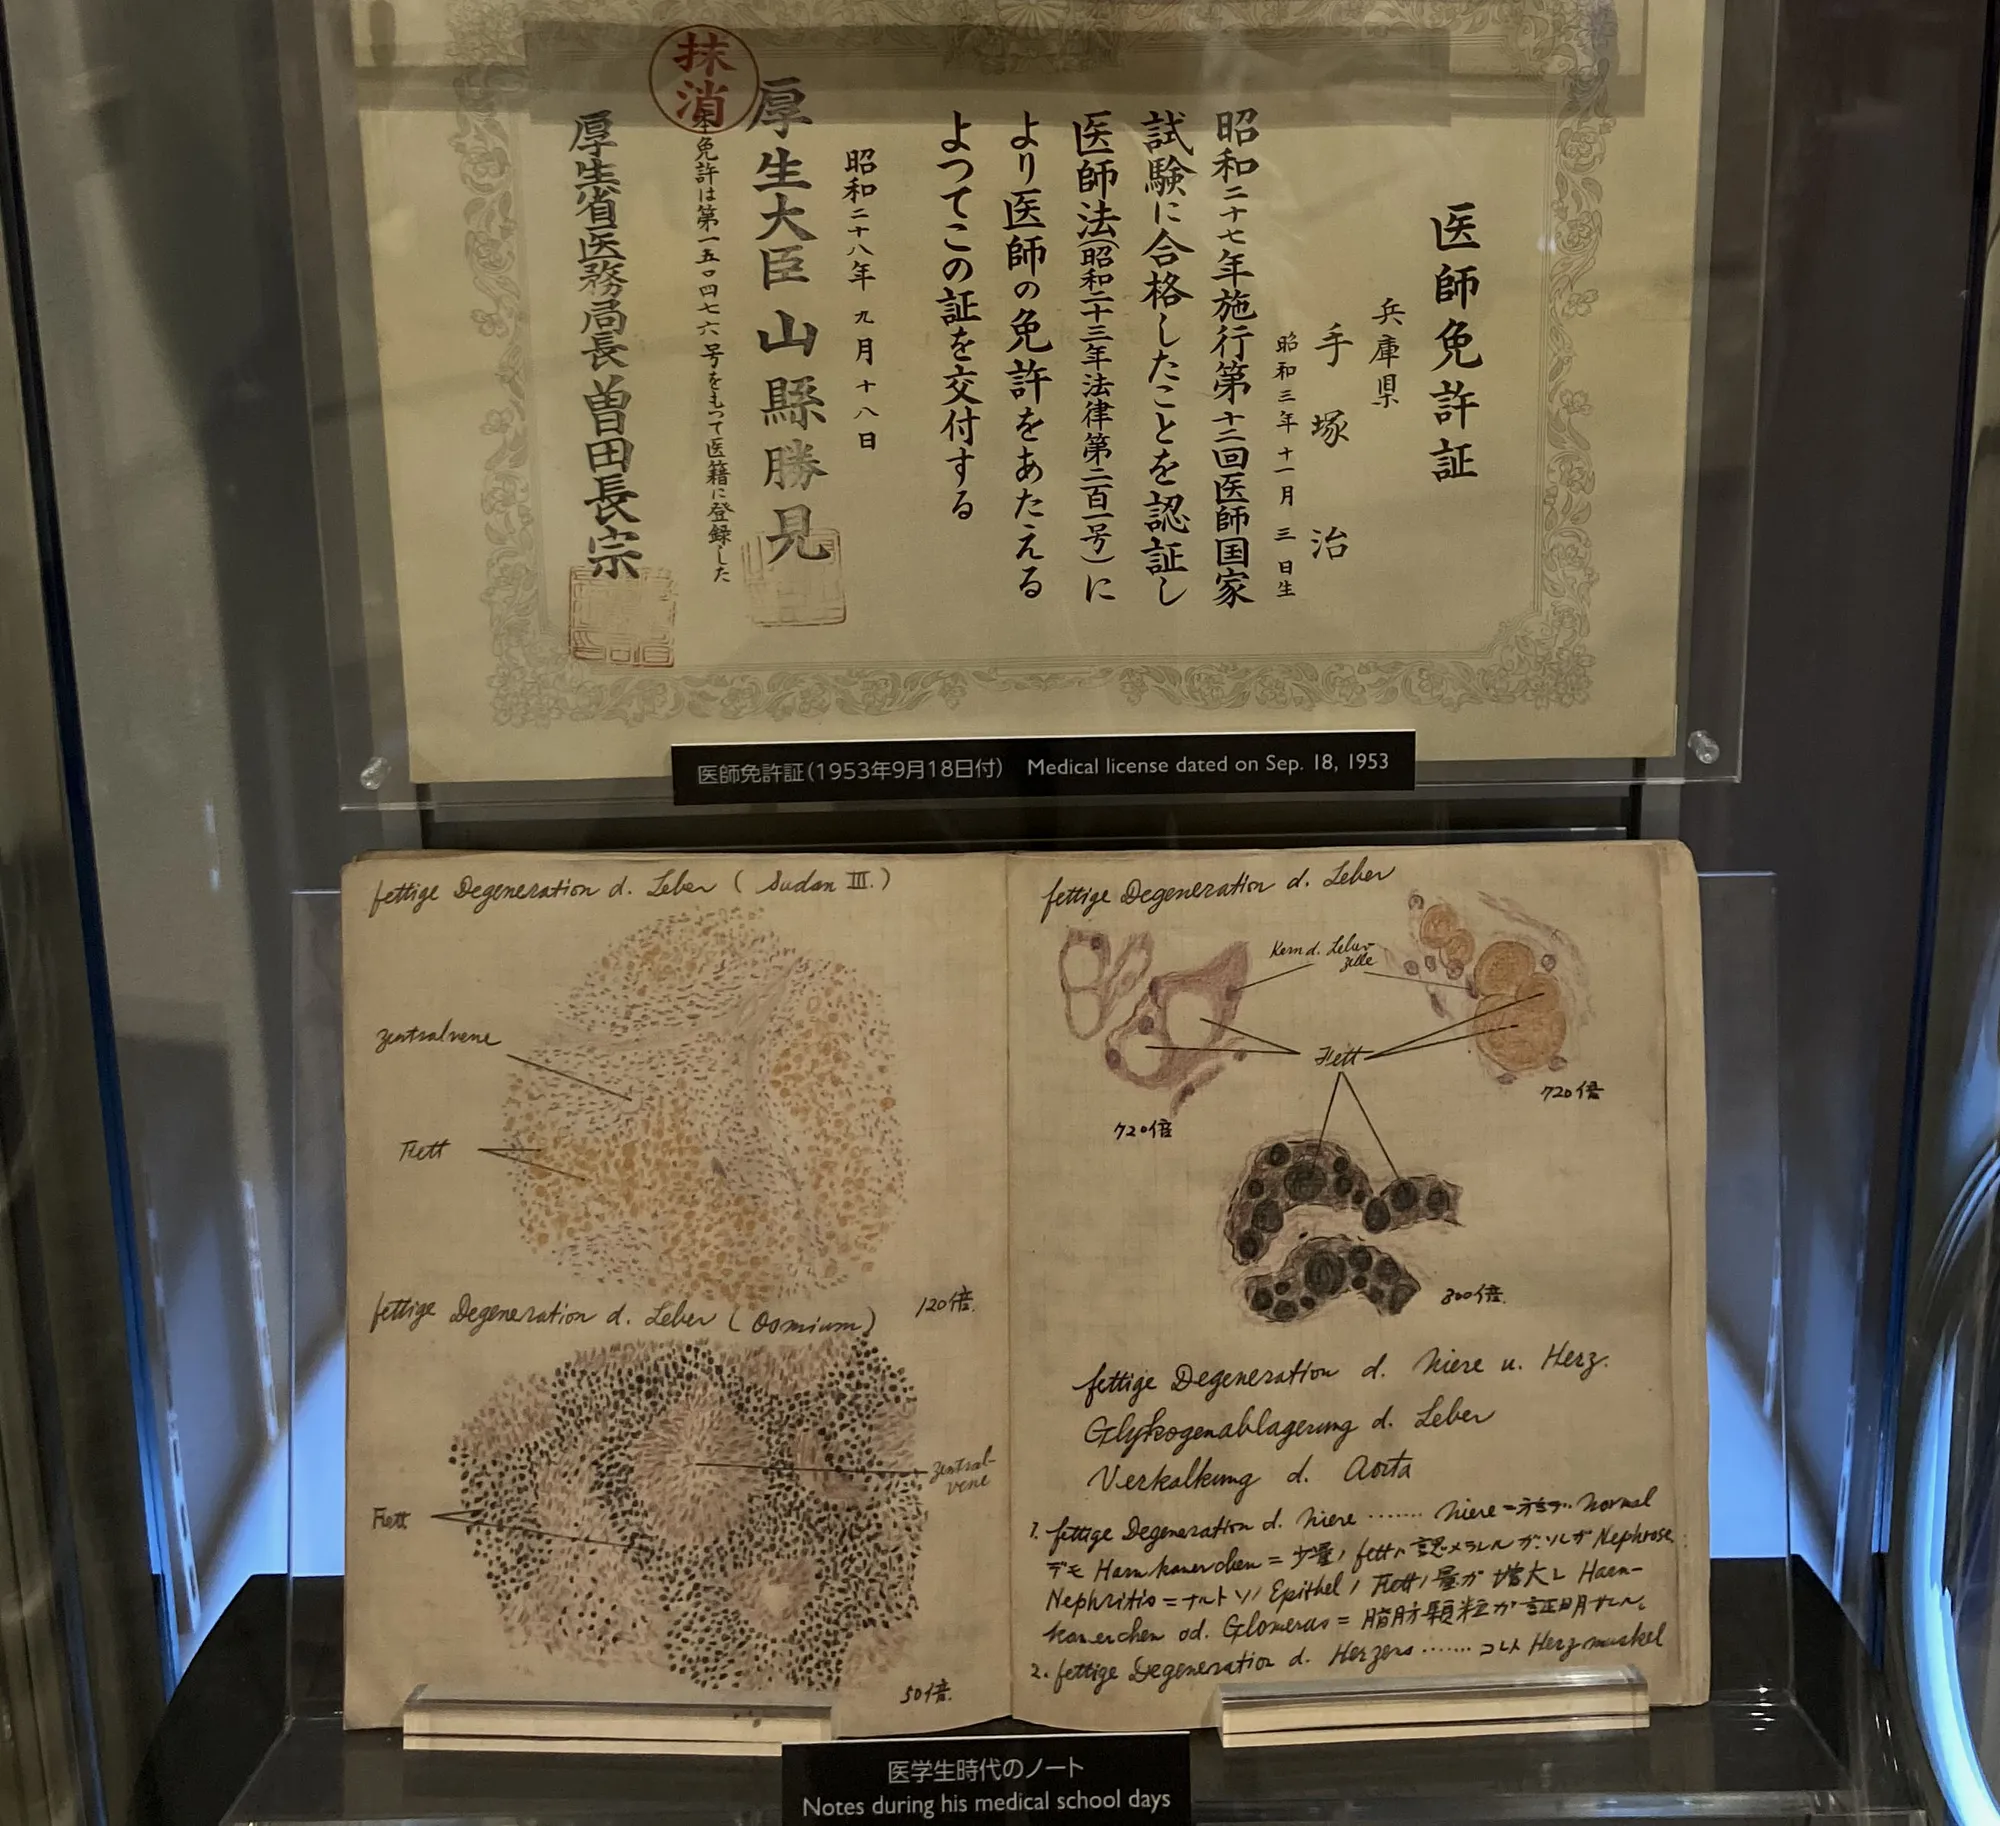 医師免許証
兵庫県
手塚治
昭和三年十一月三日生
昭和二十七年施行第十二回医師国家
試験に合格したことを認証し
医師法(昭和二十三年法律第二百一号)に
より医師の免許をあたえる
よつてこの証を交付する
昭和二十八年九月十八日
厚生大臣 山縣勝見
抹消
本免許は第一五〇四七六号をもつて医籍に登録した
厚生省医務局長 曽田長宗
医師免許証(1953年9月18日付) Medical license dated on Sep. 18, 1953
fettige Degeneration d. Leber (Sudan III.)
Zentralvene
Fett
120倍.
fettige Degeneration d. Leber (Osmium)
Zentral-
vene
Fett
50倍.
fettige Degeneration d. Leber
Kern d. Leber-
zelle
Fett
720倍
720倍
300倍.
fettige Degeneration d. Niere u. Herz.
Glykogenablagerung d. Leber
Verkalkung d. Aorta
1. fettige Degeneration d. Niere ........ Niere = normal
デモ Harnkanerchen = 少量ノ fettハ認メラレルガ. ソレガ Nephrose
Nephritis = ナルト ソノ Epithel ノ Fettノ量ガ増大シ Harn-
kanerchen od. Glomerus = 脂肪顆粒ガ証明サレル.
2. fettige Degeneration d. Herzens ....... コレハ Herzmuskel
医学生時代のノート
Notes during his medical school days